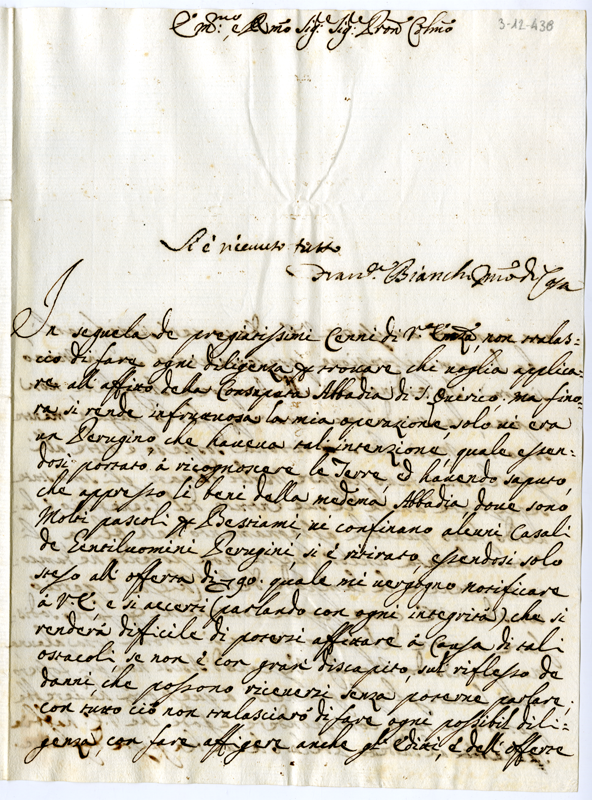 Em:mo e Rmo Sig.r Sig.r Pron Colmo
3-12-438
Si è riceuuto tutto
Bianchi Mro di Casa
In seguela de pregiatissimi Cenni di V.a Emza, non tralas-
cio di fare ogni diligenza p trouare chi uoglia applica-
re all' affitto della Consaputa Abbadia di S. Quirico, ma fino-
ra si rende infruttuosa la mia operazione, solo ui era
un Perugino, che haueua tal' intenzione, quale essen-
dosi portato à ricognoscere le Terre, et hauendo saputo,
che appresso li beni della medema Abbadia doue sono
Molti pascoli p Bestiami, ui confinano alcuni Casali
de Gentiluomini Perugini si è ritirato, essendosi solo
steso all' offerta di 90. quale mi uergogno notificare
à V.E. e si accerti (parlando con ogni integrità) che si
renderà difficile di potersi affittare à Causa di tali
ostacoli, se non è con gran discapito, sul riflesso de
danni, che possono riceuersi senza poterne parlare;
con tutto ciò non tralasciarò di fare ogni possibil dili-
genza, con fare affigere anche gl' Editti, e dell' offerte